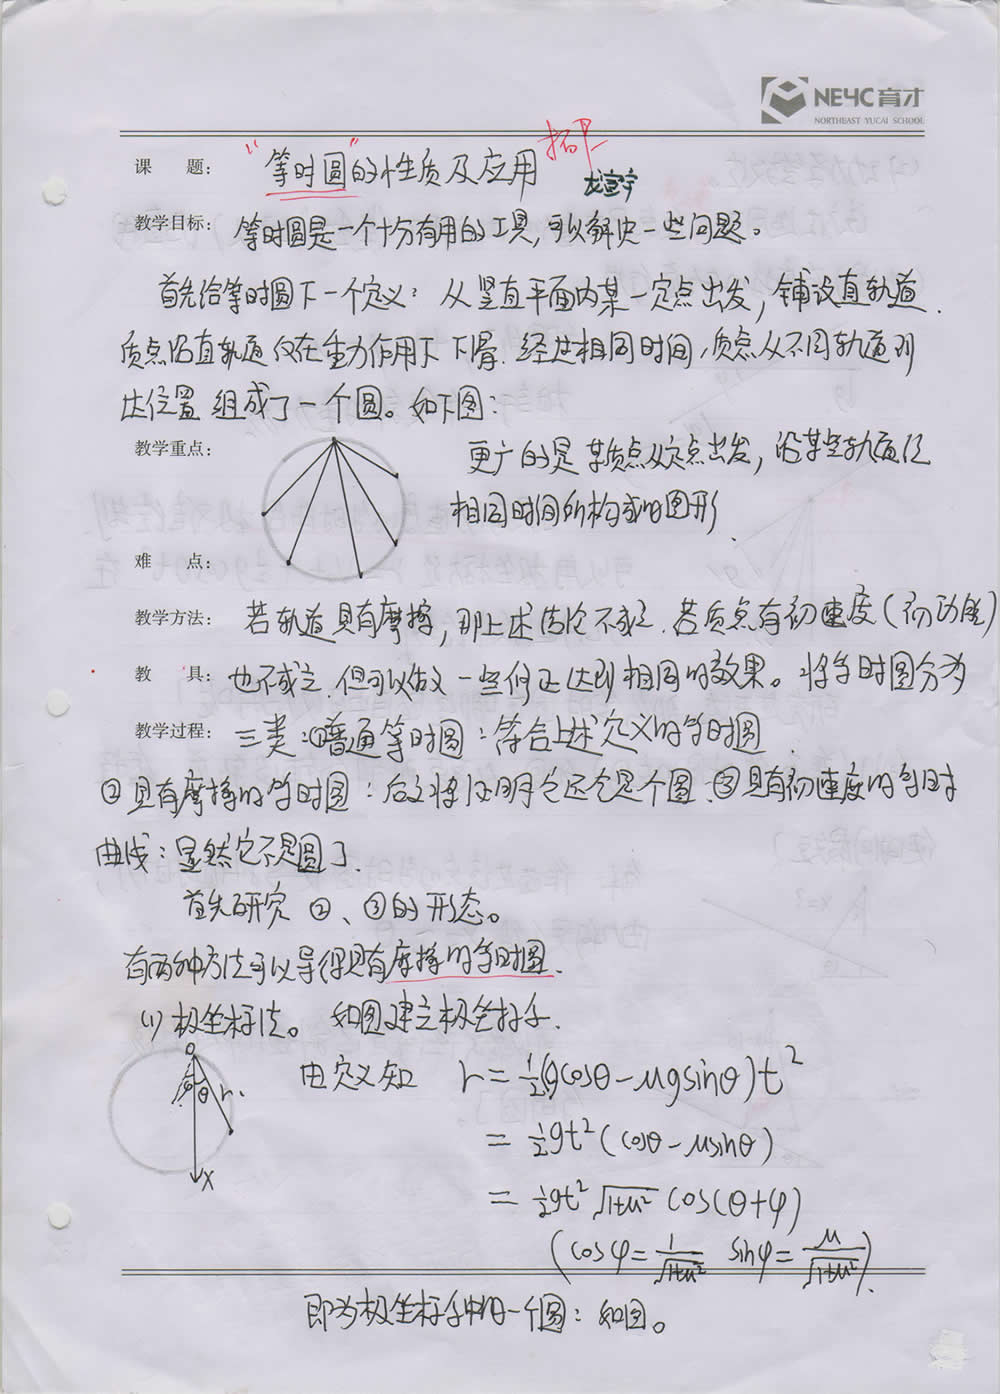 NEYC 育才
NORTHEAST YUCAI SCHOOL
课 题: “等时圆”的性质及应用
教学目标: 等时圆是一个十分有用的工具,可以解决一些问题。
首先给等时圆下一个定义: 从竖直平面内某一定点出发, 铺设直轨道.
质点沿直轨道仅在重力作用下下滑. 经过相同时间,质点从不同轨道到
达位置 组成了一个圆。如下图:
教学重点: 更广的是某质点从定点出发, 沿某些轨道经
相同时间所构成的图形.
难 点:
教学方法: 若轨道具有摩擦, 那上述结论不成立. 若质点有初速度(初动能)
教 具: 也不成立. 但可以做 一些修正达到相同的效果。将等时圆分为
教学过程: 三类:①普通等时圆:符合上述定义的等时圆.
②具有摩擦的等时圆:后文将证明它还会是个圆.③具有初速度的等时
曲线:显然它不是圆了.
首先研究 ②、③的形态。
有两种方法可以导得具有摩擦的等时圆.
(1)极坐标法。 如图建立极坐标系.
O
θ r.
X
由定义知 r=½(gcosθ-μgsinθ)t²
=½gt²(cosθ-μsinθ)
=½gt²√1+μ² cos(θ+φ)
(cosφ=1/√1+μ² sinφ=μ/√1+μ²).
即为极坐标系中的一个圆:如图。